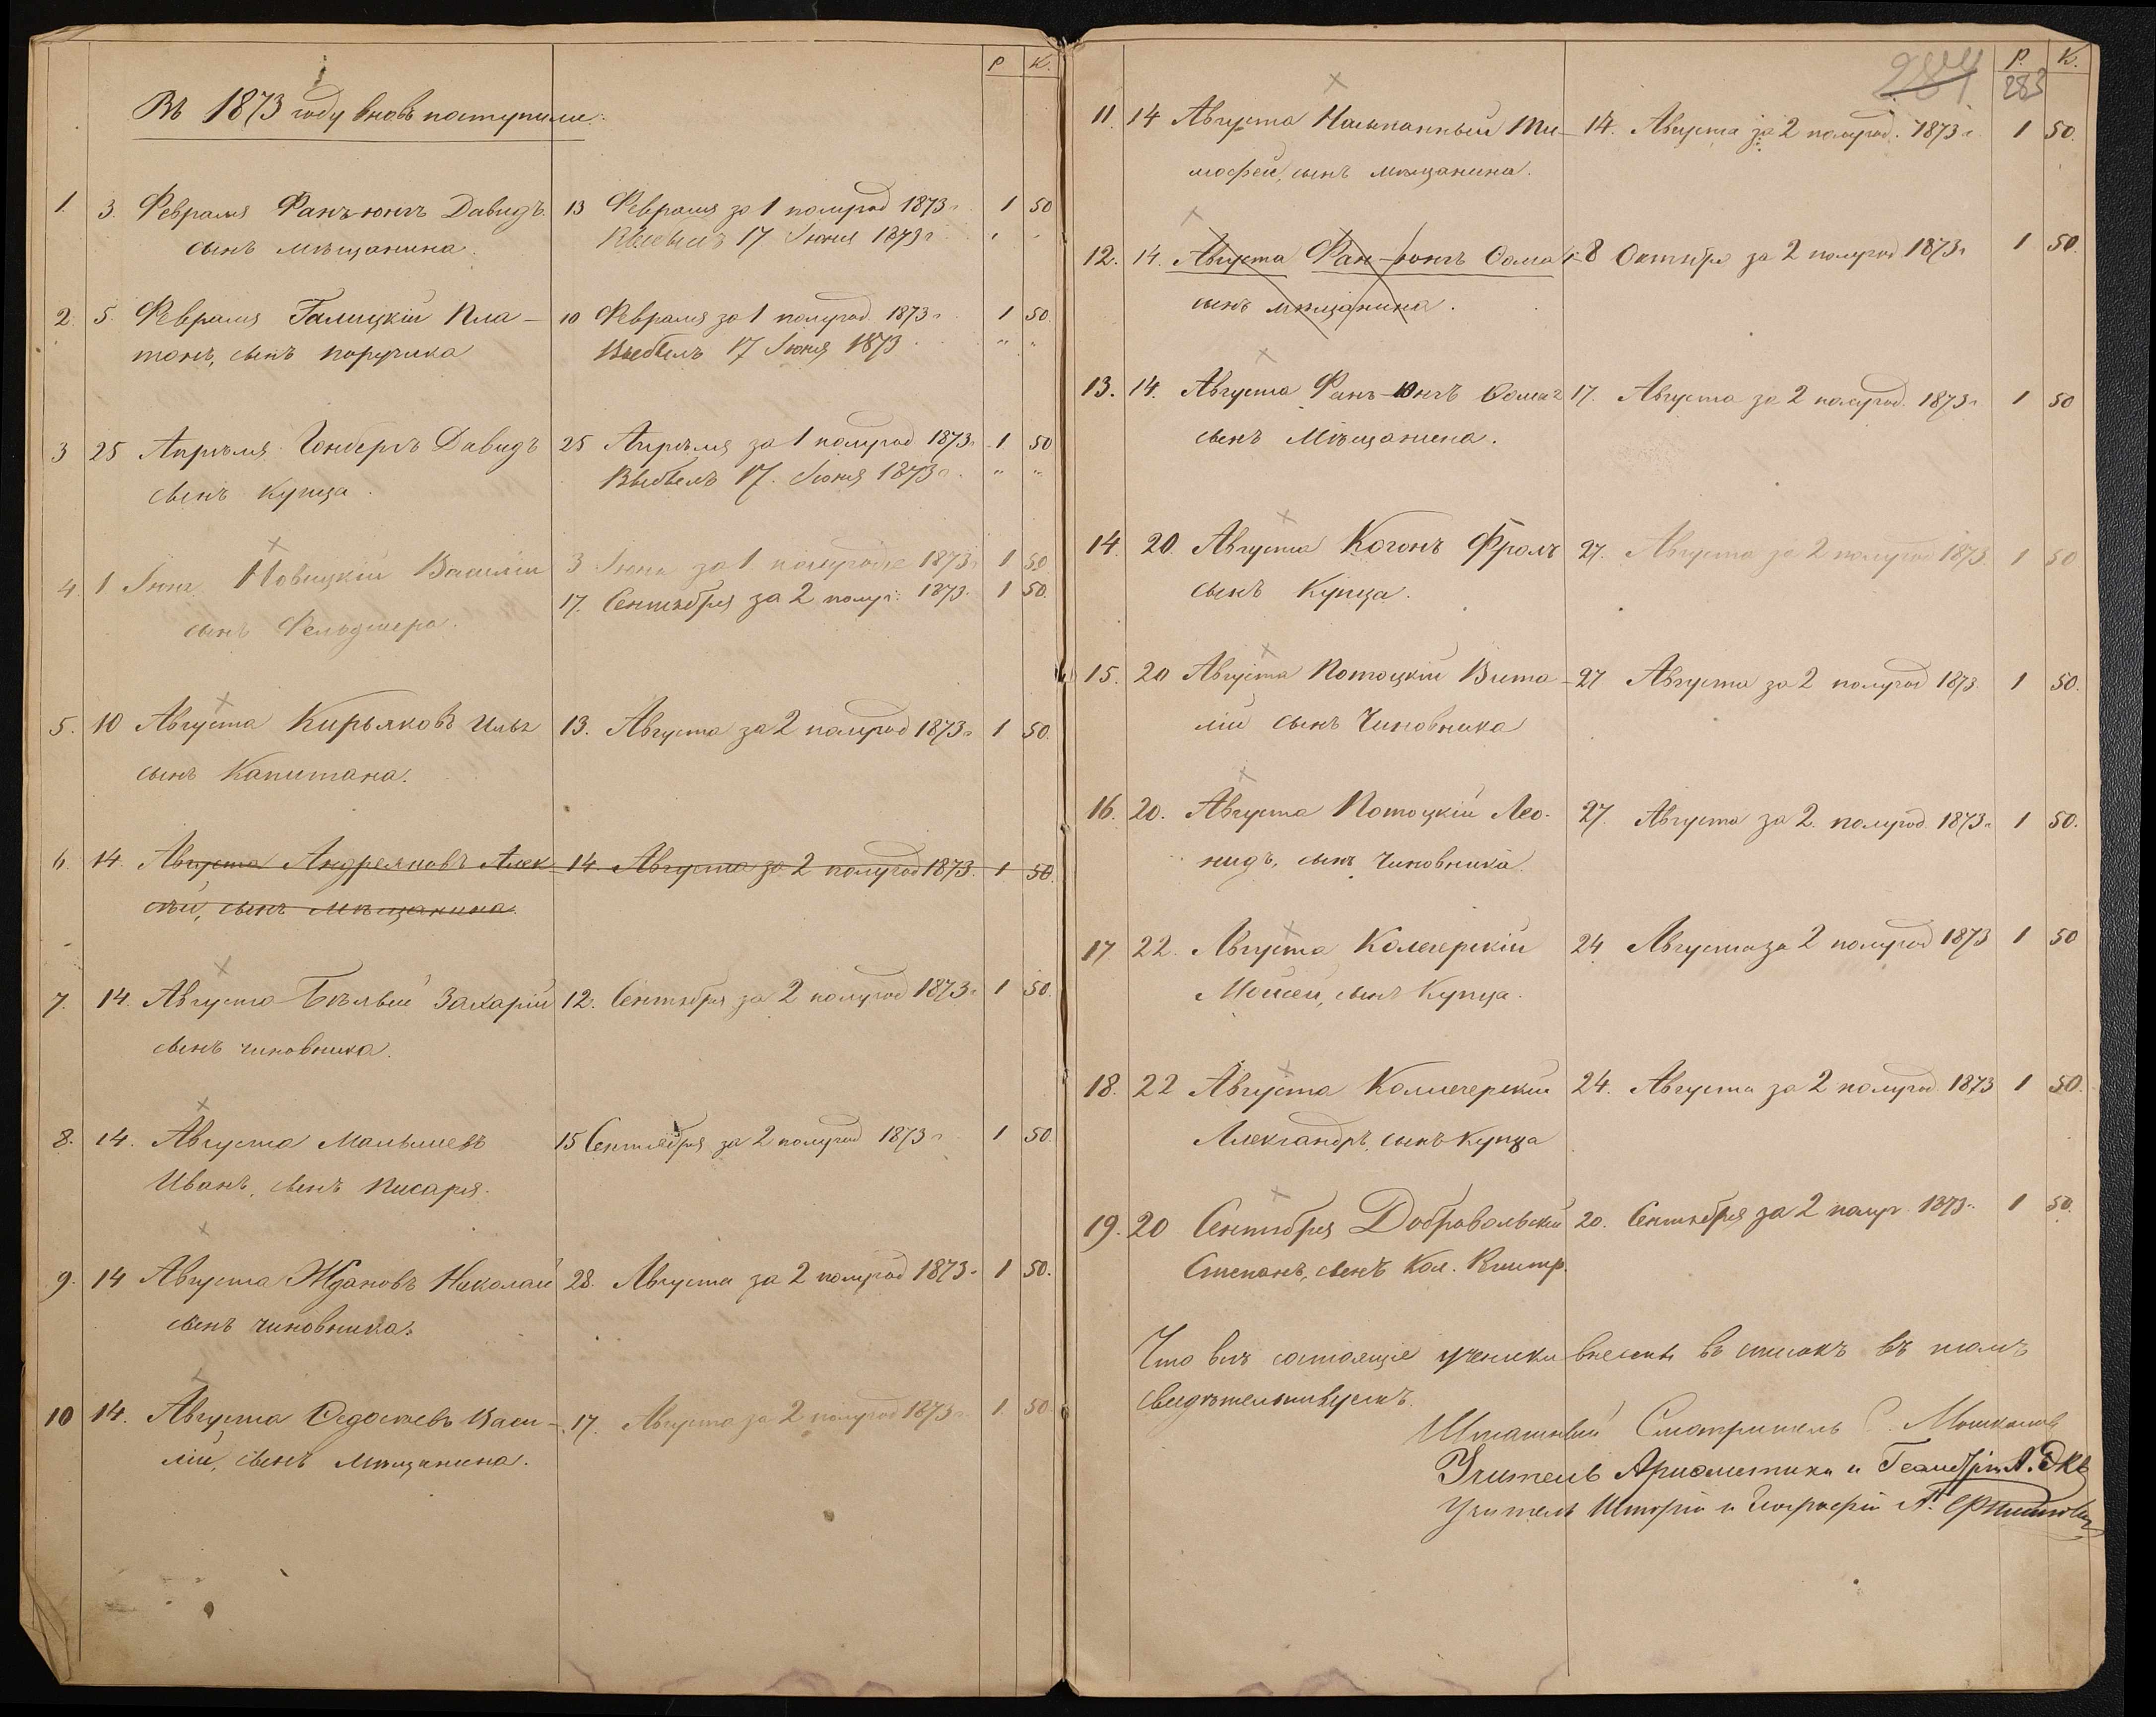 Р К.
Въ 1873 году вновь поступили:
1. 3. Февраля Фанъ-юнгъ Давидъ 13 Февраля за 1 полугод 1873 г. 1 50
сынъ мѣщанина. Выбылъ 17 Іюня 1873 г.
2. 5. Февраля Галицкій Пла- 10 Февраля за 1 полугод. 1873 г. 1 50.
тонъ, сынъ поручика Выбылъ 17 Іюня 1873 " "
3 25 Апрѣля Давидъ 25 Апрѣля за 1 полугод 1873 г. 1 50
сынъ купца. Выбылъ 17. Іюня 1873 г. " "
4. 1 Іюня Новицкій Василій 3 Іюня за 1 полугодіе 1873 г. 1 50
17. Сентября за 2 полуг. 1873. 1 50.
сынъ Фельдшера.
5. 10 Августа Кирьяковъ Илья 13. Августа за 2 полугод 1873 г. 1 50.
сынъ Капитана.
6. 14. Августа Андреяновъ Алек- 14. Августа за 2 полугод 1873. 1 50.
сѣй, сынъ Мѣщанина.
7. 14. Августа Бѣлый Захарій 12. Сентября за 2 полугод 1873 г. 1 50.
сынъ чиновника.
8. 14. Августа Малышевъ 15 Сентября за 2 полугод 1873 г. 1 50.
Иванъ, сынъ Писаря.
9. 14 Августа Ждановъ Николай 28. Августа за 2 полугод 1873. 1 50.
сынъ чиновника.
10 14. Августа Васи- 17. Августа за 2 полугод 1873 г. 1. 50
лій, сынъ Мѣщанина.
284 Р. К.
283
11. 14 Августа Ти- 14. Августа за 2 полугод. 1873 г. 1 50.
мофей, сынъ мѣщанина.
12. 14. Августа Фан-юнгъ Ѳома 8 Октября за 2 полугод 1873 г. 1 50.
сынъ мѣщанина.
13. 14. Августа Фанъ-Юнгъ Ѳома 17. Августа за 2 полугод. 1873 г. 1 50
сынъ Мѣщанина.
14. 20. Августа Когонъ Фролъ 27. Августа за 2 полугод 1873. 1 50
сынъ Купца.
15. 20 Августа Потоцкій Вита- 27 Августа за 2 полугод 1873. 1 50.
лій сынъ Чиновника
16. 20. Августа Потоцкій Лео- 27. Августа за 2. полугод. 1873 г. 1 50.
нидъ, сынъ Чиновника.
17 22. Августа 24 Августа за 2 полугод 1873 1 50
Моисей, сынъ Купца.
18. 22 Августа 24. Августа за 2 полугод. 1873 1 50.
Александръ, сынъ Купца
19. 20 Сентября Добровольскій 20. Сентября за 2 полуг. 1873 г. 1 50.
Степанъ, сынъ Кол. Регистр.
Что всѣ состоящіе ученики внесены въ списокъ въ томъ
свидѣтельствуемъ.
Штатный Смотритель
Учитель Ариѳметики и Геометріи А.
Учитель Исторіи и Географіи